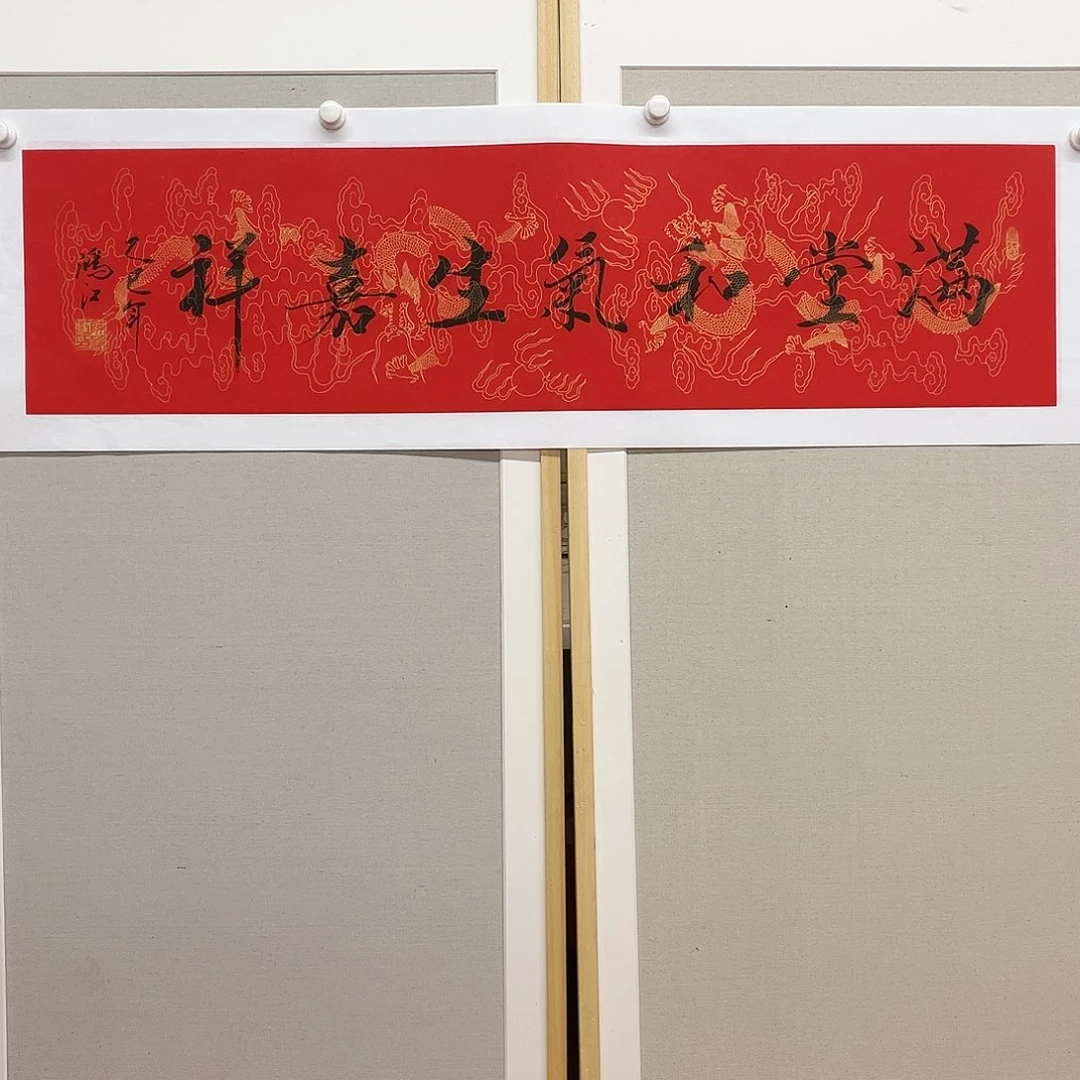 滿堂和氣生嘉祥
乙巳年
鴻江